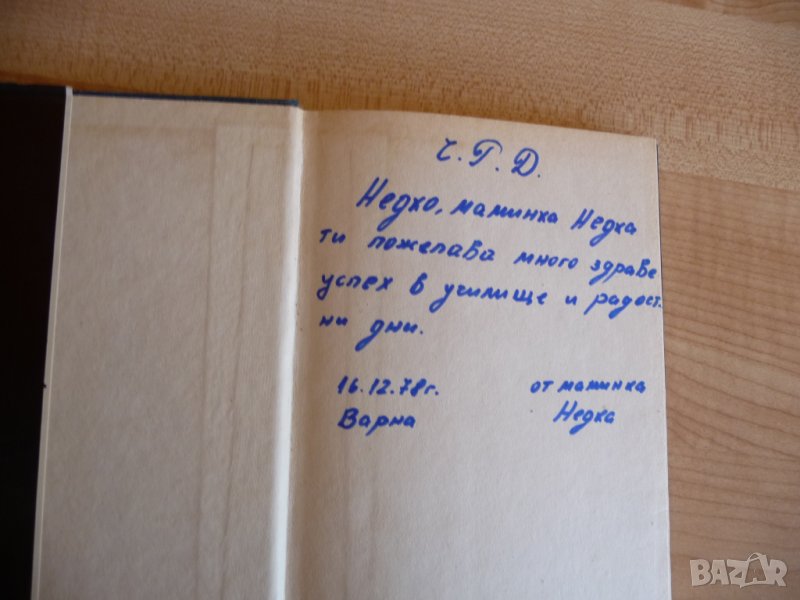 Ч.Г.Д.
Недко, маминка Недка
ти пожелава много здраве
успех в училище и радост-
ни дни.
16.12.78г. от маминка
Варна Недка
BAZAR